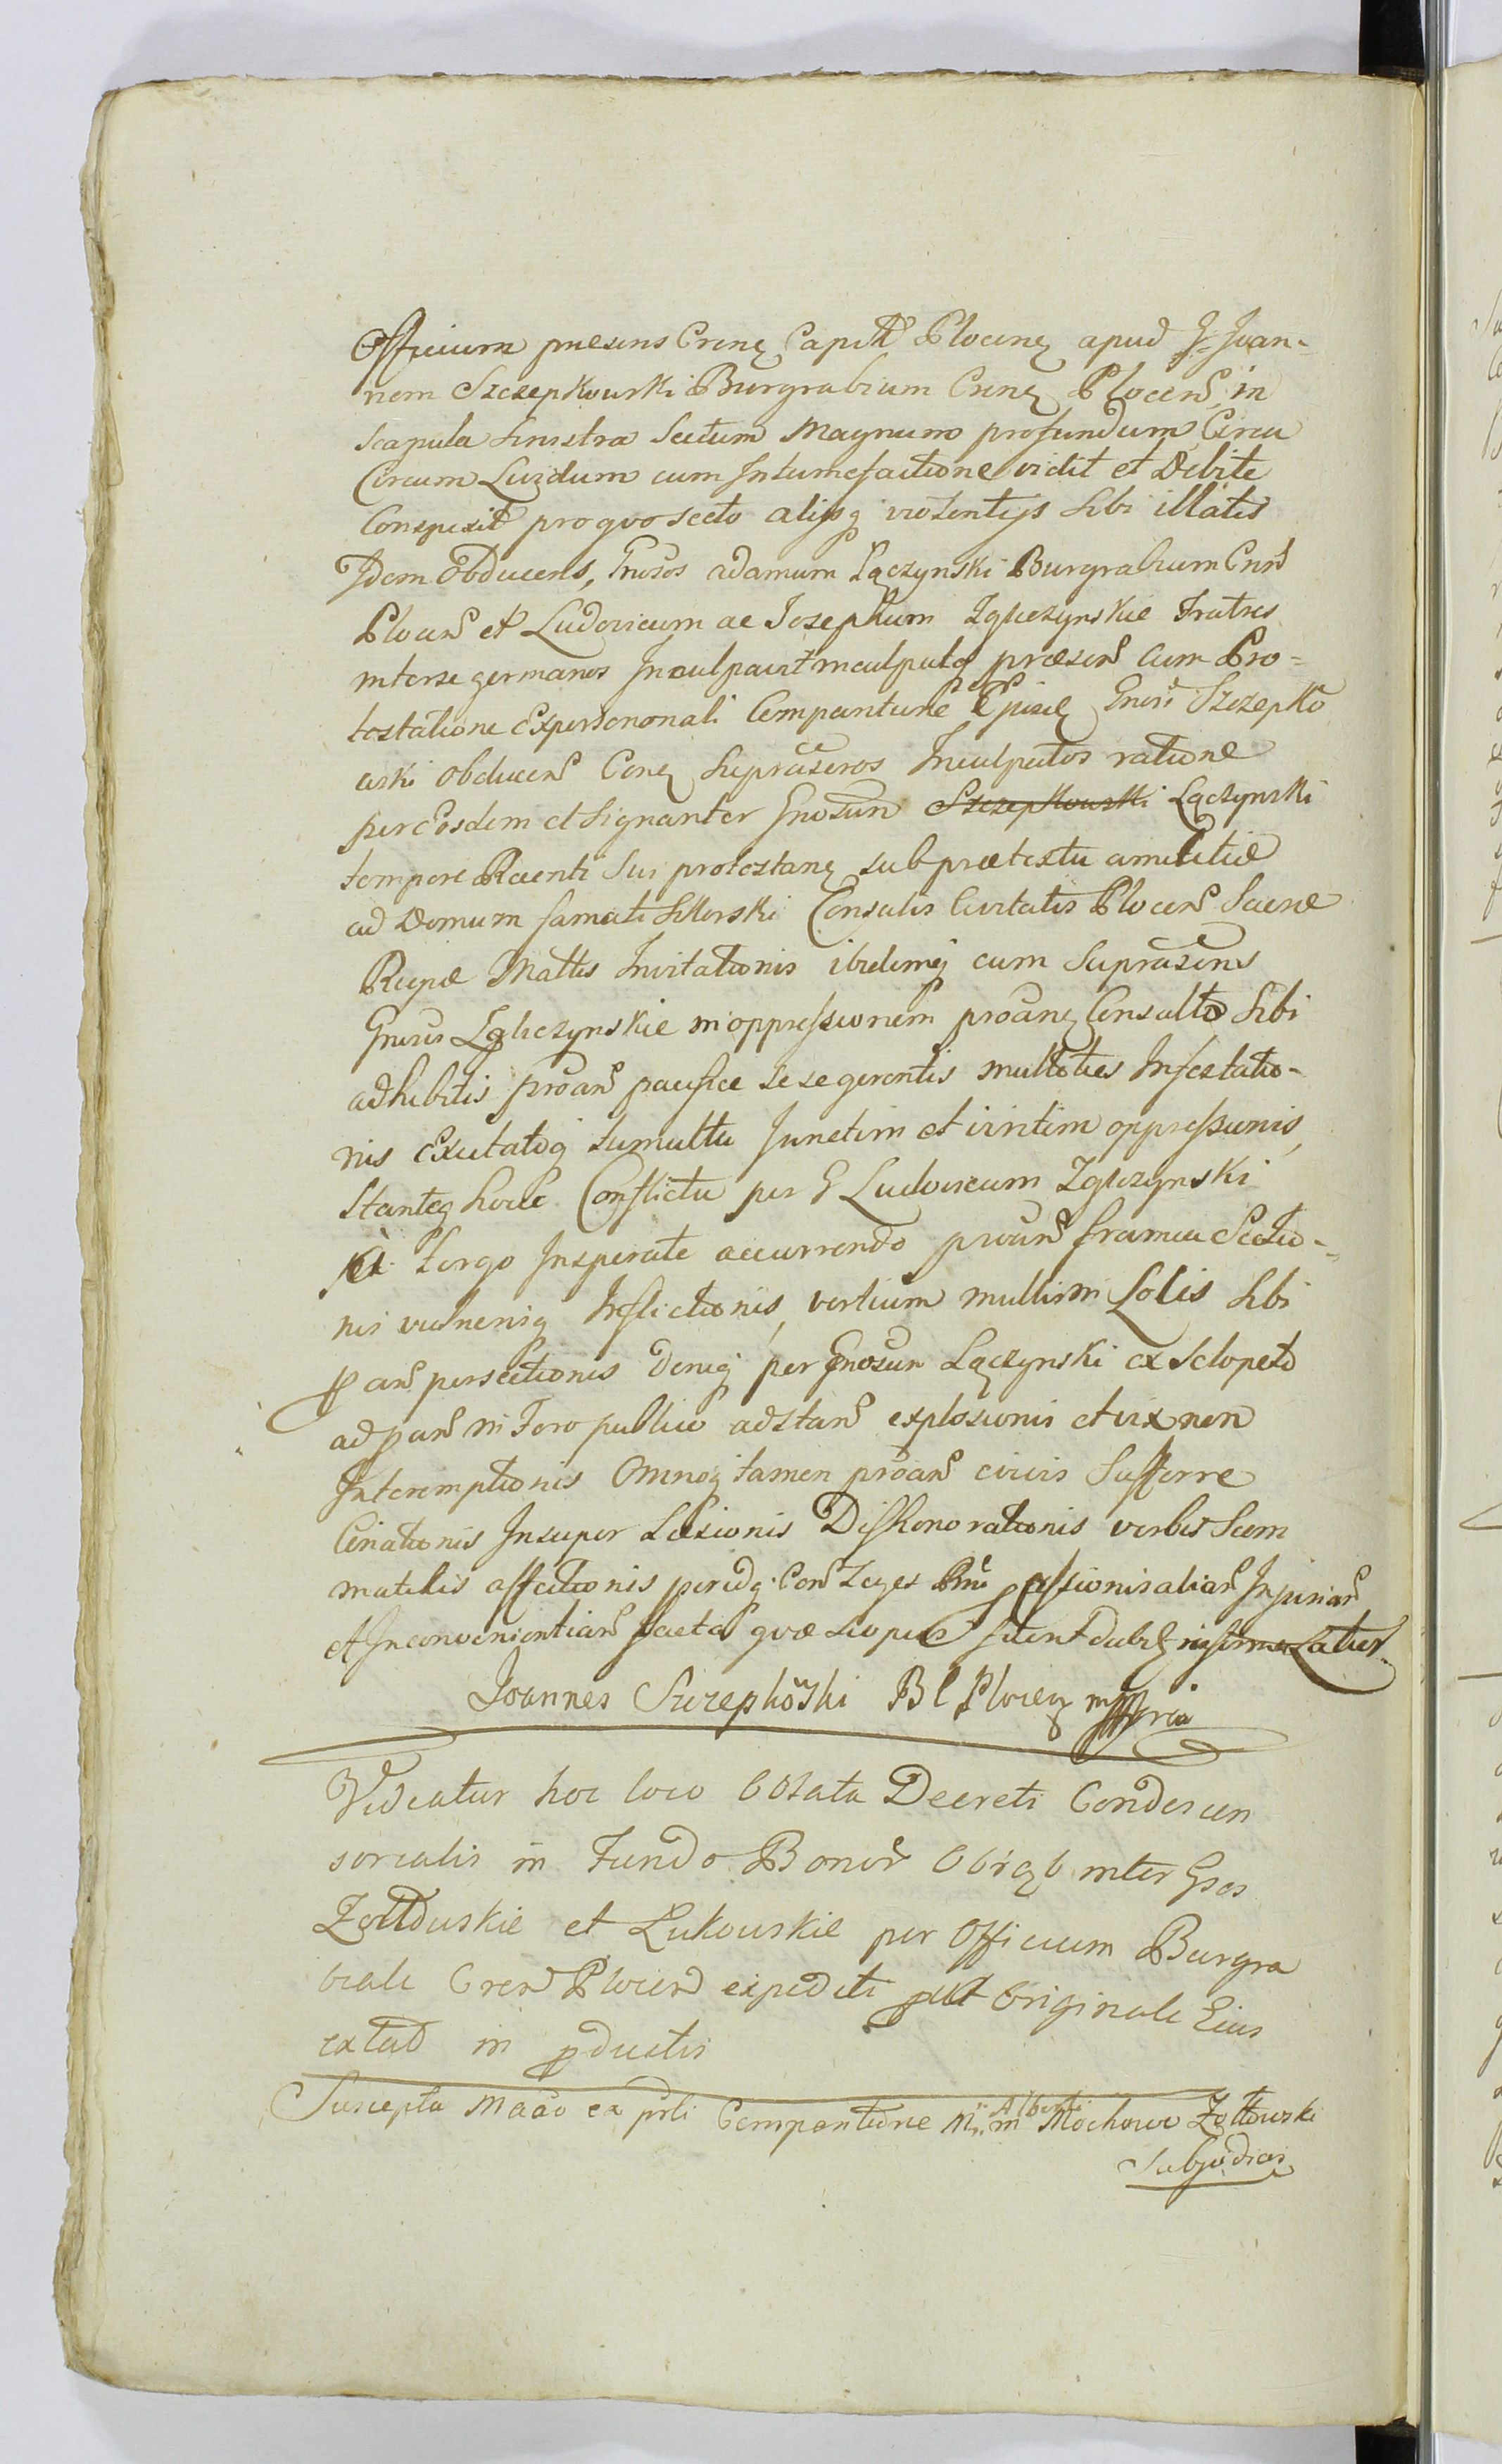 Officium præsens Crense Capitle Plocense apud G. Joan-
nem Szczepkowski Burgrabium Crense Plocens, in
scapula sinistra Sectum Magnum profundum Circa
Circum Lividum cum Intumefactione vidit et Debite
Conspexit pro quo secto alijsq violentijs Sibi illatis
Idem Obducens, Gnosos Adamum Łączynski Burgrabium Crens
Plocens et Ludovicum ac Josephum Zgliczynskie Fratres
inter se germanos Inculpavit inculpatq præsens cum Pro=
testatione Ex personali Comparitione Ejusd Gnosi Szczepko
wski obducens Conq Supraseros Inculpatos ratione
per Eosdem et Signanter Gnosum Szczepkowski Łączynski
tempore Recenti Sui protestang sub prætextu amicitiæ
ad Domum famati Sikorski Consulis Civitatis Plocens Sacræ
Regiæ Mattis Invitationis ibidemq cum Suprasens
Gnosis Zgliczynskie in oppressionem proang Consulto Sibi
adhibitis proans pacifice se se gerentis multoties Infestatio-
nis Excitatoq tumultu Junctim et viritim oppressionis,
Stanteq hocce Conflictu per G Ludovicum Zgliczynski
a Tergo Insperate accurrendo proans framea Sectio-
nis vulnerisq Inflictionis, vestium multis in Locis Sibi
pans persectionis Deniq per Gnosum Łączynski ex Sclopeto
ad pans in Foro publico adstans explosionis et vix non
Interemptionis Omnoq tamen proans civis Sufferre
Conationis Insuper Læsionis Dishonorationis verbis Scom
maticis affectionis peridq Con Leges passionis alias Injurias
et Inconvenientias facta quæ
Joannes Szczepkoski B C Plocens mppria
Videatur hoc loco Oblata Decreti Condescen
sorialis in Fundo Bonor Obrąb inter Gsos
Zołtowskie et Łukowskie per Officium Burgra
biale Crens Plocens expediti put Originale Eius
extat in pductis
Suscepta Maao ex psli Comparitione M. Alberti in Mochowo Zołtowski
Subjudicis